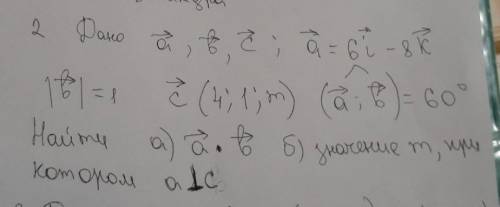 2 Дано a⃗, b⃗, c⃗; a⃗ = 6i⃗ - 8k⃗
|b⃗| = 1 c⃗ (4; 1; m) (a⃗; b⃗) = 60°
Найти а) a⃗ · b⃗ б) значение m, при
котором a ⊥ c